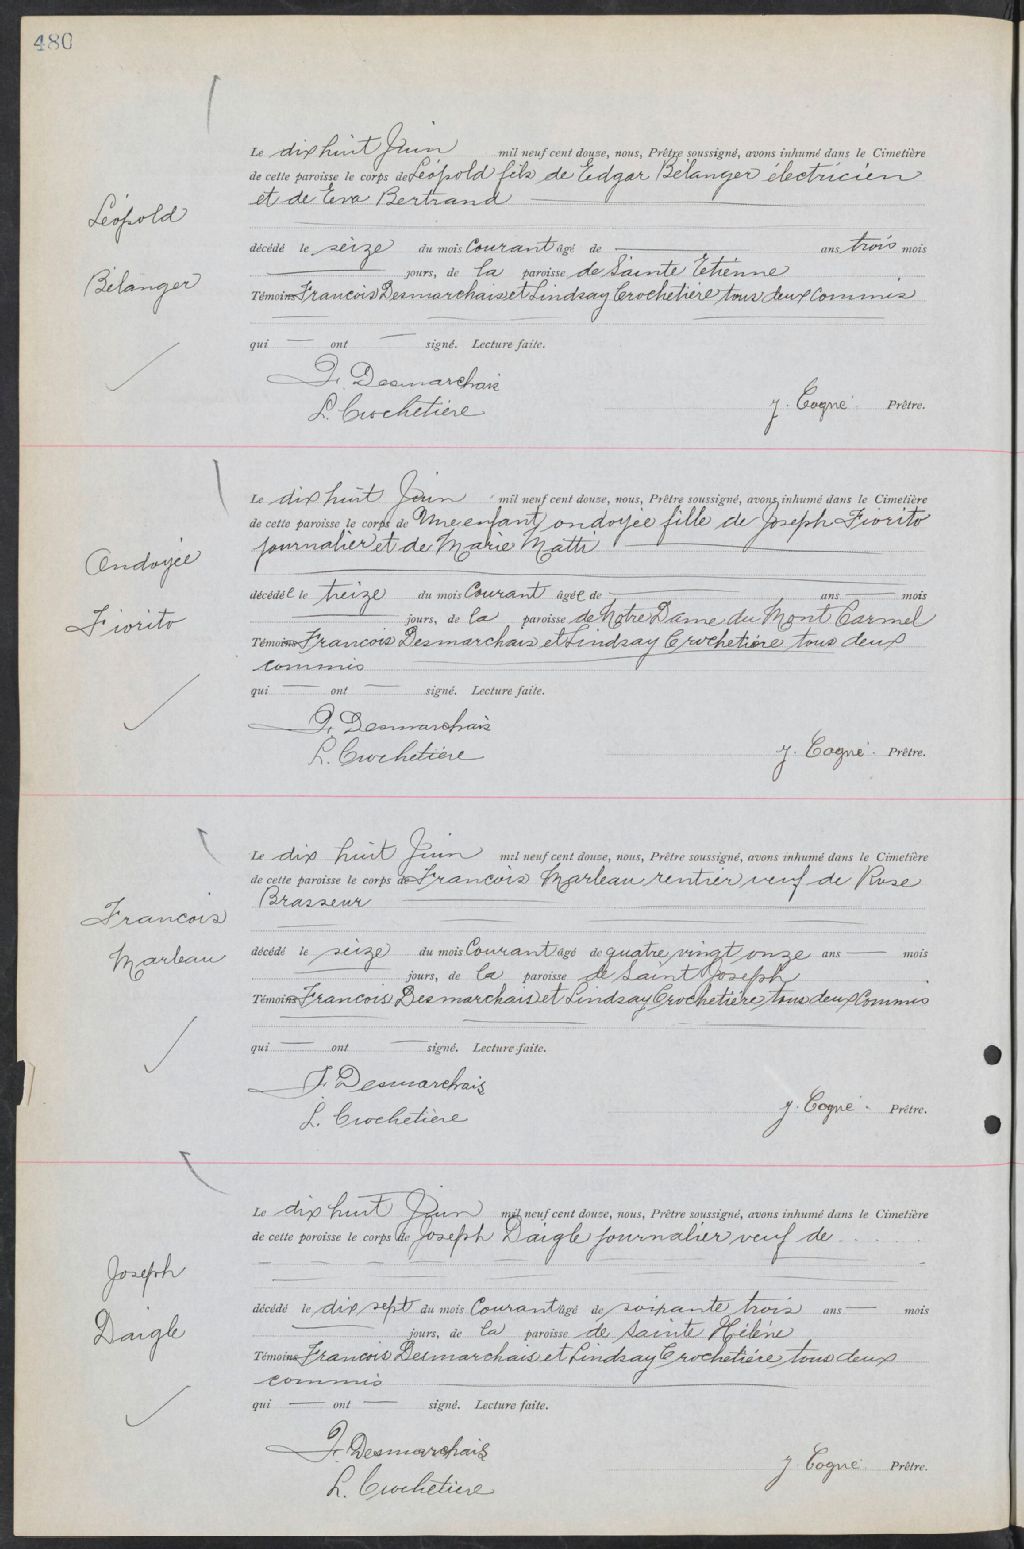 480
Le dix huit Juin mil neuf cent douze, nous, Prêtre soussigné, avons inhumé dans le Cimetière
de cette paroisse le corps de Léopold fils de Edgar Bélanger électricien
et de Eva Bertrand
Léopold
Bélanger
décédé le seize du mois Courant âgé de ans trois mois
jours, de la paroisse de Sainte Etienne
Témoins Francois Desmarchais et Lindsay Crochetière tous deux Commis
qui ont signé. Lecture faite.
F. Desmarchais
L. Crochetière
J. Cogné Prêtre.
Le dix huit Juin mil neuf cent douze, nous, Prêtre soussigné, avons inhumé dans le Cimetière
de cette paroisse le corps de Une enfant ondoyée fille de Joseph Fiorito
journalier et de Marie Matti
Ondoyée
Fiorito
décédée le treize du mois Courant âgée de ans mois
jours, de la paroisse de Notre Dame du Mont Carmel
Témoins Francois Desmarchais et Lindsay Crochetière tous deux
commis
qui ont signé. Lecture faite.
F. Desmarchais
L. Crochetière
J. Cogné. Prêtre.
Le dix huit Juin mil neuf cent douze, nous, Prêtre soussigné, avons inhumé dans le Cimetière
de cette paroisse le corps de Francois Marleau rentier veuf de Rose
Brasseur
Francois
Marleau
décédé le seize du mois Courant âgé de quatre vingt onze ans mois
jours, de la paroisse de Saint Joseph
Témoins Francois Desmarchais et Lindsay Crochetière tous deux Commis
qui ont signé. Lecture faite.
F. Desmarchais
L. Crochetière
J. Cogné. Prêtre.
Le dix huit Juin mil neuf cent douze, nous, Prêtre soussigné, avons inhumé dans le Cimetière
de cette paroisse le corps de Joseph Daigle journalier veuf de
Joseph
Daigle
décédé le dix sept du mois Courant âgé de soixante trois ans mois
jours, de la paroisse de Sainte Hélène
Témoins Francois Desmarchais et Lindsay Crochetière tous deux
commis
qui ont signé. Lecture faite.
F. Desmarchais
L. Crochetière
J Cogné Prêtre.